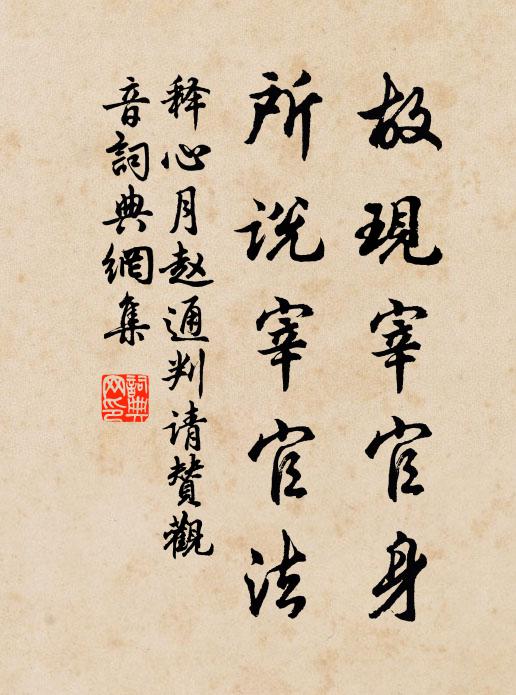 故現宰官身
所说宰官法
释心月赵通判请赞觀
音詞典網集
詞典
网印